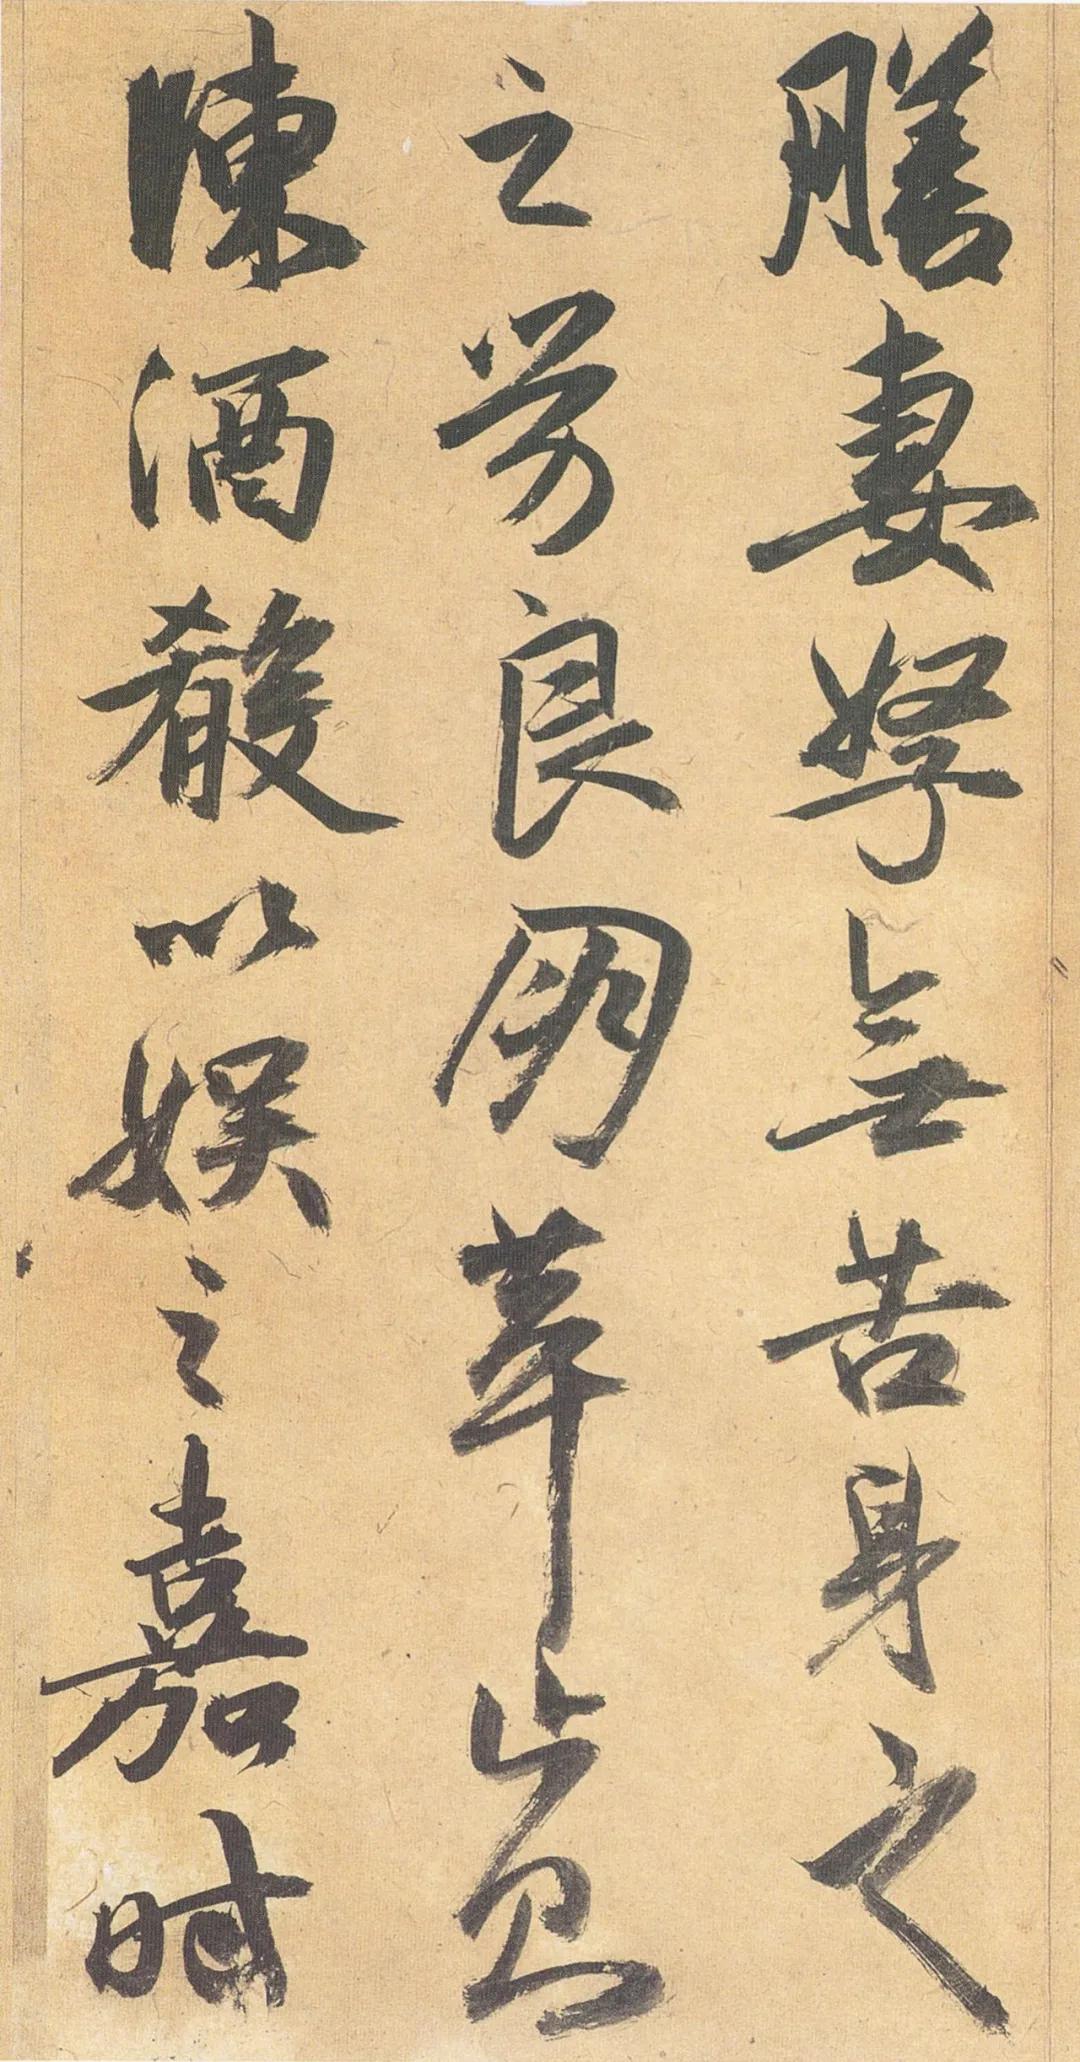 膳妻孥無苦身之
之勞良朋萃止則
陳酒殽以娛之嘉時